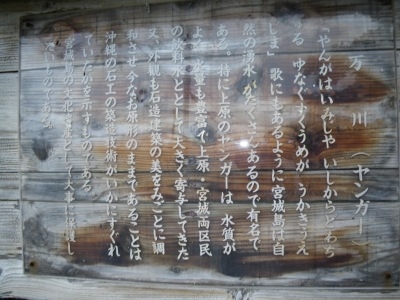 万川（ヤンガー）
「やんがはいみじや いしからどわち
る ゆなぐすくうめが うかきうえ
しま」歌にもあるように宮城島は自
然の湧水がたくさんあるので有名で
ある。特に上原のヤンガーは、水質が
よく、水量も豊富で上原・宮城両区民
の飲料水として大きく寄与してきた
又、外観も石造建築の美をみごとに調
和させ今なお原形のままであることは
沖縄の石工の築造技術がいかにすぐれ
ていたかを示すものである。
宮城島の文化遺産として大事に保護し
たいものである。